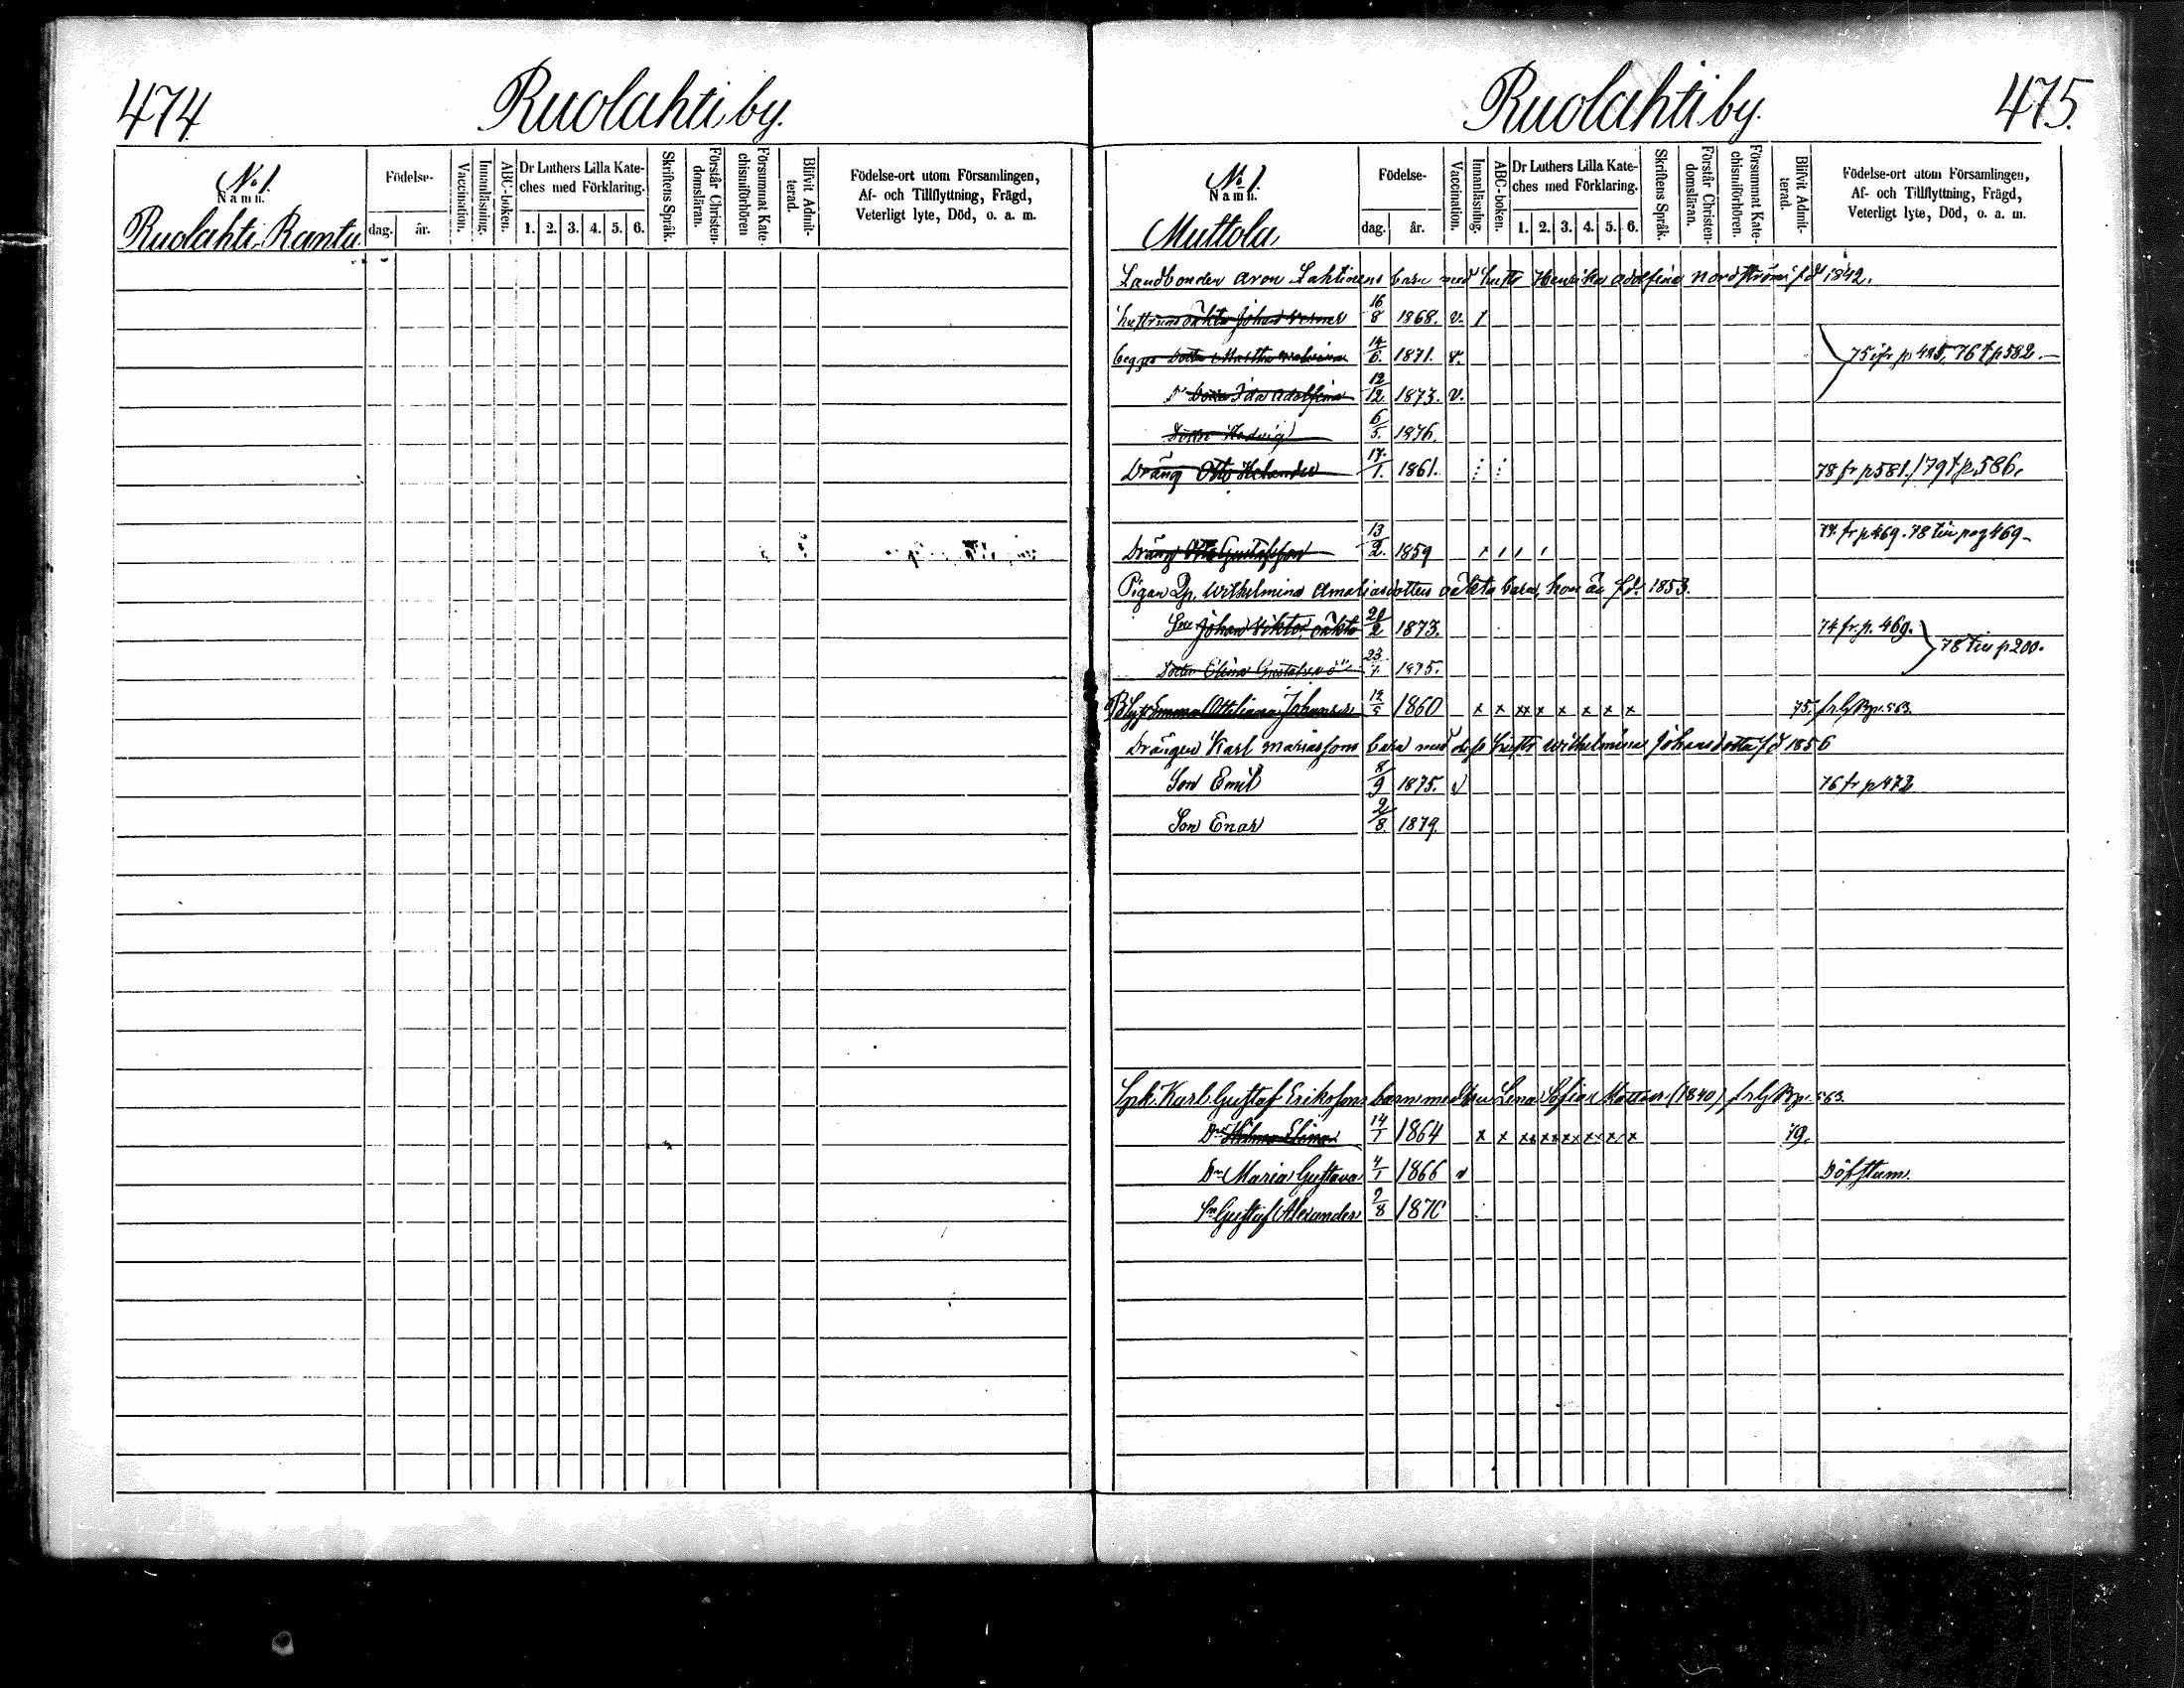 474.
Ruolahti by.
No 1.
Namn.
Ruolahti Ranta
Födelse-
dag. år.
Vaccination.
Innanläsning.
ABC-boken.
Dr Luthers Lilla Kate-
ches med Förklaring.
1. 2. 3. 4. 5. 6.
Skriftens Språk.
Förstår Christen-
domsläran.
Försummat Kate-
chismiförhören
Blifvit Admit-
terad.
Födelse-ort utom Församlingen,
Af- och Tillflyttning, Frägd,
Veterligt lyte, Död, o. a. m.
Ruolahti by.
475.
No 1.
Namn.
Muttola
Födelse-
dag. år.
Vaccination.
Innanläsning.
ABC-boken.
Dr Luthers Lilla Kate-
ches med Förklaring.
1. 2. 3. 4. 5. 6.
Skriftens Språk.
Förstår Christen-
domsläran.
Försummat Kate-
chismiförhören.
Blifvit Admit-
terad.
Födelse-ort utom Församlingen,
Af- och Tillflyttning, Frägd,
Veterligt lyte, Död, o. a. m.
Landbonden Aron Lahtinens barn med hustr Henrika Adolfina Nordström fd 1842.
hustruns oäkta Johan 16/8 1868. v. 1
begges Dottr Martha 14/6. 1871. v. 75 ifr p 495, 76 t p 582.
Dottr Ida Adolfina 12/12. 1873. v.
Dottr Hedvig 6/5. 1876.
Dräng Otto Helander 17/1. 1861. 78 fr p 581. / 79 t p. 586.
Dräng Otto Gustafsson 13/2. 1859 77. fr p 469. 78 till pag 469
Pigan Wilhelmina Amaliasdotters oäkta barn, hon är fd. 1853.
Sne Johan Viktor oäkta 1873. 74 fr. p. 469. 78 till p 200.
Dotter Elina Gustafva 23/1. 1875.
Emma Ottiliana Johansdr 12/5 1860 x x xx x x x x x 75. fr. p. 563.
Drängen Karl Mariassons barn med dess hustr Wilhelmina Johansdotter fd 1856
Son Emil 8/9 1875. v 76 fr p 472
Son Enar 2/8. 1879.
Karl Gustaf Eriksons barn med Lena Sofia (1840) fr. p. 563.
Dr Hilma Elina 14/1 1864 x x xx xx xx x x x 79.
Dr Maria Gustava 4/1 1866 v Döfstum.
Sn Gustaf Alexander 9/8 1870